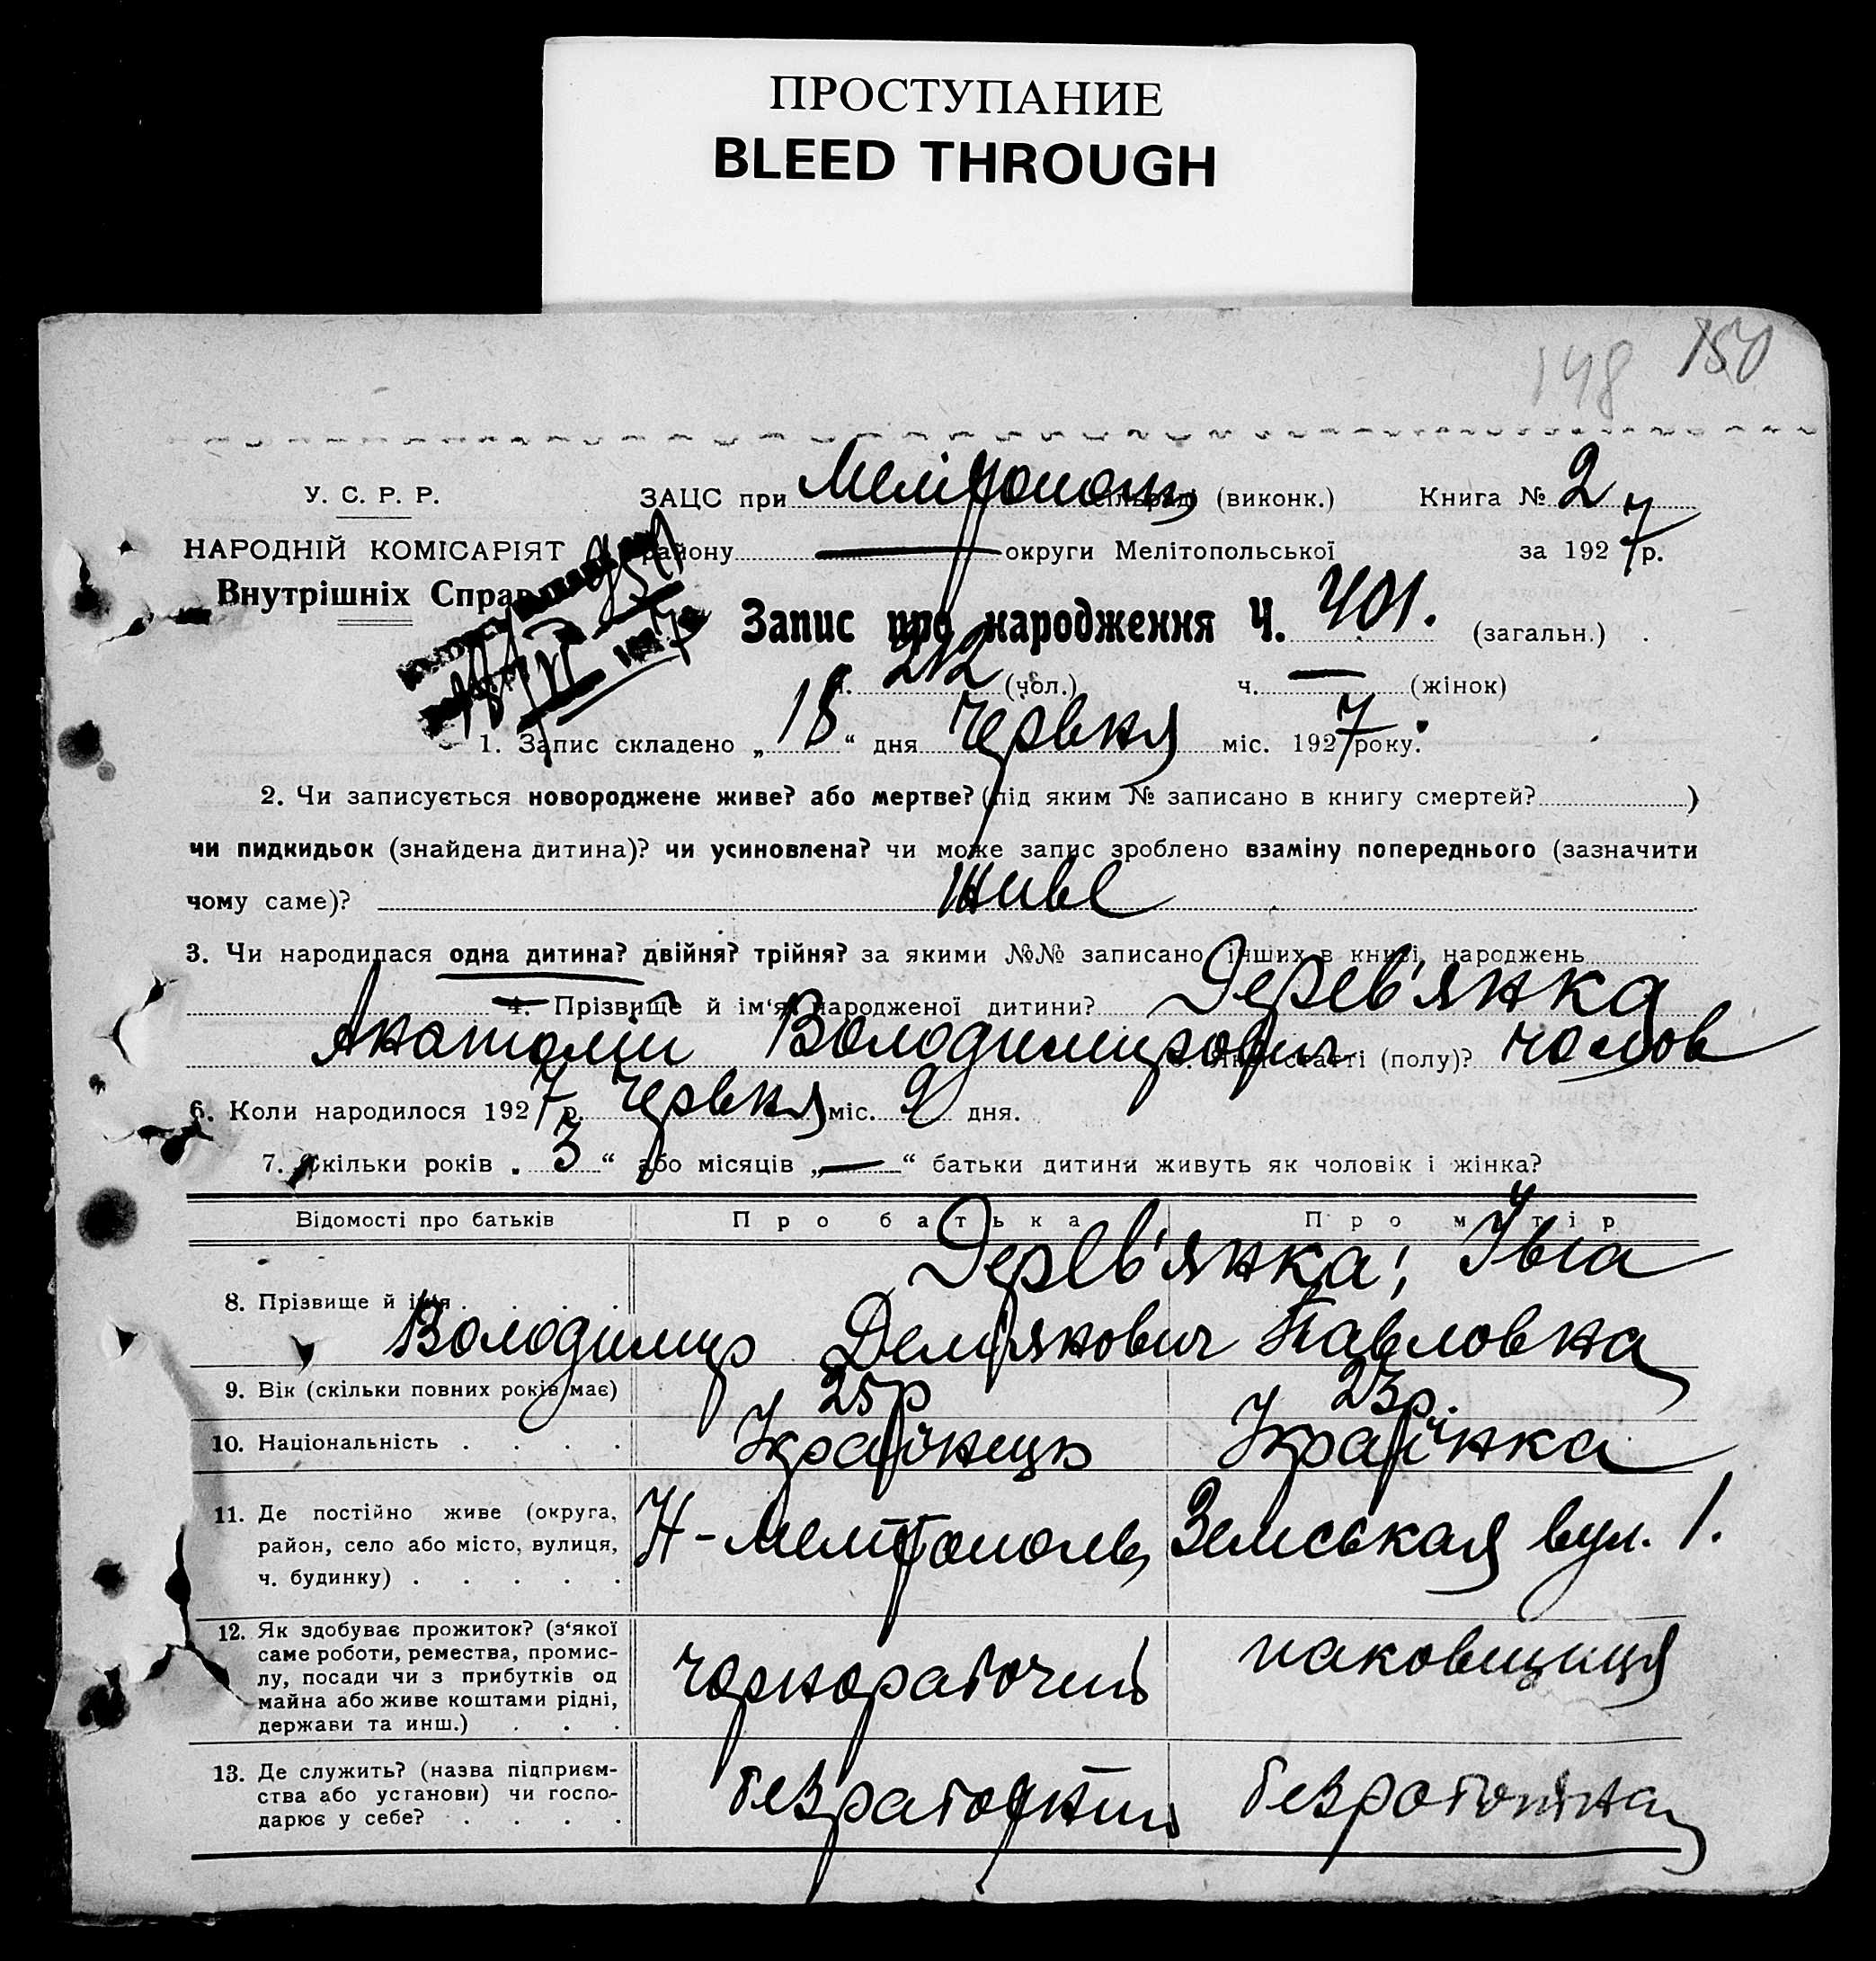 ПРОСТУПАНИЕ
BLEED THROUGH
148 150
У. С. Р. Р. ЗАЦС при Мелітополь (виконк.) Книга № 2
НАРОДНІЙ КОМІСАРІЯТ району — округи Мелітопольської за 1927 р.
Внутрішніх Справ
Запис про народження Ч. 401. (загальн.)
ч. 212 (чол.) ч. — (жінок)
1. Запис складено „18“ дня червня міс. 1927 року.
2. Чи записується новороджене живе? або мертве? (під яким № записано в книгу смертей? )
чи пидкидьок (знайдена дитина)? чи усиновлена? чи може запис зроблено взаміну попереднього (зазначити
чому саме)? живе
3. Чи народилася одна дитина? двійня? трійня? за якими №№ записано інших в книзі народжень
4. Прізвище й ім‘я народженої дитини? Дерев'янка
Анатолій Володимирович 5. статті (полу)? чолов
6. Коли народилося 1927 р. червня міс. 2 дня.
7. Скільки років „3“ або місяців „—“ батьки дитини живуть як чоловік і жінка?
Відомості про батьків Про батька Про матір
8. Прізвище й ім‘я Дерев'янка;
Володимир Демянович Павловна
9. Вік (скільки повних років має) 25р 23р.
10. Національність Українець Українка
11. Де постійно живе (округа, район, село або місто, вулиця, ч. будинку) Н-Мелітополь Земськая вул. 1.
12. Як здобуває прожиток? (з‘якої саме роботи, ремества, промислу, посади чи з прибутків од майна або живе коштами рідні, держави та инш.) чорнорабочий паковщиця
13. Де служить? (назва підприємства або установи) чи господарює у себе? безработний безработняна